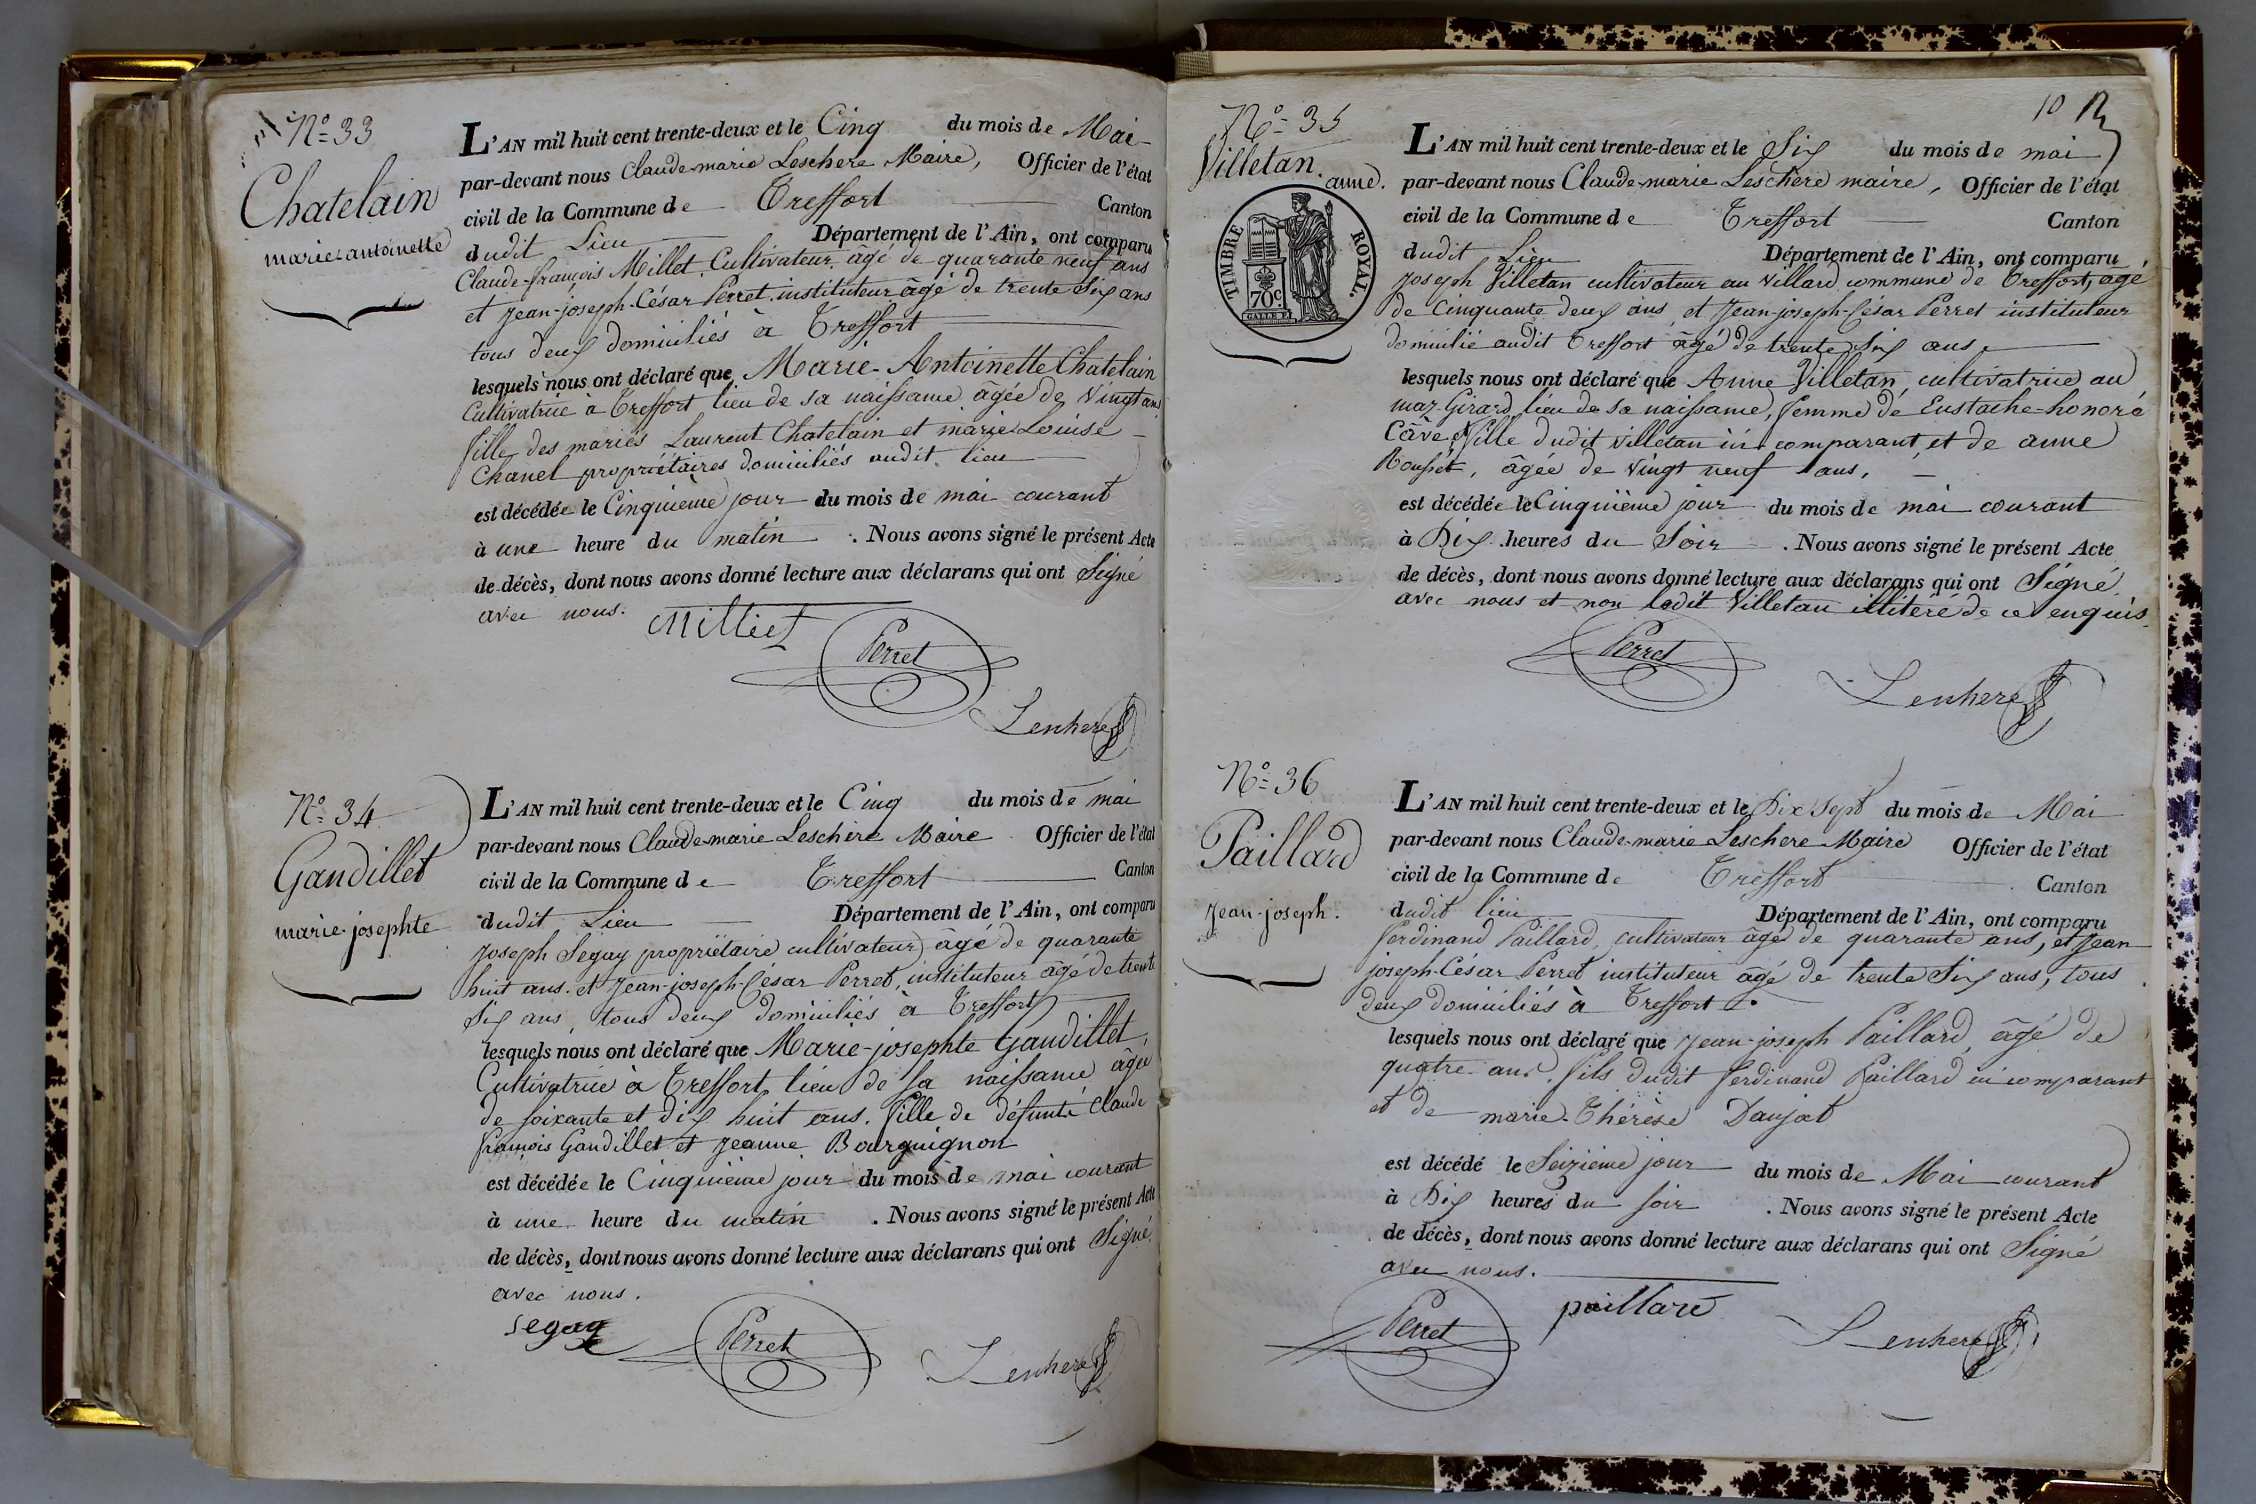 N° 33
Chatelain
marie-antoinette
L'AN mil huit cent trente-deux et le Cinq du mois de Mai
par-devant nous Claude-marie Leschere Maire, Officier de l'état
civil de la Commune de Treffort Canton
dudit Lieu Département de l'Ain, ont comparu
Claude-françois Millet Cultivateur âgé de quarante neuf ans
et Jean-joseph-César Perret instituteur âgé de trente Six ans
tous deux domiciliés à Treffort
lesquels nous ont déclaré que Marie-Antoinette Chatelain
Cultivatrice à Treffort lieu de sa naissance âgée de Vingt ans
fille des mariés Laurent Chatelain et marie Louise
Chanel propriétaires domiciliés audit lieu
est décédée le Cinquième jour du mois de mai courant
à une heure du matin . Nous avons signé le présent Acte
de décès, dont nous avons donné lecture aux déclarans qui ont Signé
avec nous.
Milliet
Perret
Leschere
N° 34
Gandillet
marie-josephte
L'AN mil huit cent trente-deux et le Cinq du mois de mai
par-devant nous Claude-marie Leschère Maire Officier de l'état
civil de la Commune de Treffort Canton
dudit Lieu Département de l'Ain, ont comparu
Joseph Seguy propriétaire cultivateur âgé de quarante
huit ans. et Jean-joseph-César Perret, instituteur âgé de trente
Six ans, tous deux domiciliés à Treffort
lesquels nous ont déclaré que Marie-josephte Gandillet,
Cultivatrice à Treffort, lieu de sa naissance âgée
de soixante et dix huit ans. fille de défunts Claude
françois Gandillet et Jeanne Bourguignon
est décédée le Cinquième jour du mois de mai courant
à une heure du matin . Nous avons signé le présent Acte
de décès, dont nous avons donné lecture aux déclarans qui ont Signé
avec nous.
seguy
Perret
Leschere
10
N° 35
Villetan.
anne.
TIMBRE ROYAL.
70c.
L'AN mil huit cent trente-deux et le Six du mois de mai
par-devant nous Claude-marie Leschère maire, Officier de l'état
civil de la Commune de Treffort Canton
dudit Lieu Département de l'Ain, ont comparu
Joseph Villetan cultivateur au villard commune de Treffort, âgé
de Cinquante deux ans et Jean-joseph-César Perret instituteur
domicilié audit Treffort âgé de trente Six ans
lesquels nous ont déclaré que Anne Villetan, cultivatrice au
maz-Girard, lieu de sa naissance, femme de Eustache-honoré
Câve, fille dudit villetan ici comparant et de anne
Rousset, âgée de vingt neuf ans,
est décédée le Cinquième jour du mois de mai courant
à Dix heures du Soir . Nous avons signé le présent Acte
de décès, dont nous avons donné lecture aux déclarans qui ont Signé
avec nous et non ledit Villetan illitéré de ce enquis
Perret
Leschere
N° 36
Paillard
Jean-joseph.
L'AN mil huit cent trente-deux et le Dix Sept du mois de Mai
par-devant nous Claude-marie Leschere Maire Officier de l'état
civil de la Commune de Treffort Canton
dudit lieu Département de l'Ain, ont comparu
Ferdinand Paillard, cultivateur âgé de quarante ans, et Jean
joseph-César Perret instituteur âgé de trente Six ans, tous
deux domiciliés à Treffort.
lesquels nous ont déclaré que Jean-joseph Paillard, âgé de
quatre ans, fils dudit Ferdinand Paillard ici comparant
et de marie-Thérèse Daujat
est décédé le Seizième jour du mois de Mai courant
à Dix heures du soir . Nous avons signé le présent Acte
de décès, dont nous avons donné lecture aux déclarans qui ont Signé
avec nous.
Perret
paillard
Leschere